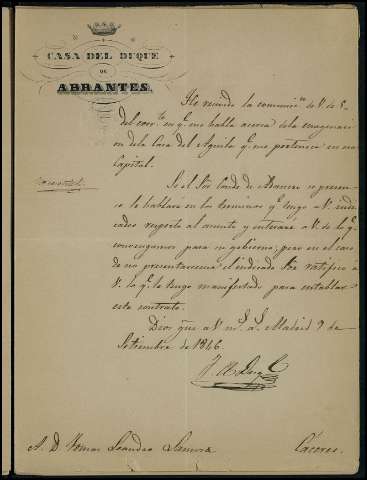 CASA DEL DUQUE
DE
ABRANTES.
He recibido la comunicn. de V. de 5
del corrte. en q. me habla acerca de la enagenaci
on de la Casa del Aguila q. me pertenece en esa
Capital.
Si el Sor. Conde de se presen
le hablaré en los terminos q. tengo a V. indi
cados respecto al asunto y enteraré a V. de lo q.
convengamos para su gobierno; pero en el caso
de no presentarseme el indicado Sor. ratifico a
V. lo q. le tengo manifestado para entablar
este contrato.
Dios gue. a V. ms. as. Madrid 9 de
Setiembre de 1846.
A. D. Tomas Leandro
Cáceres.